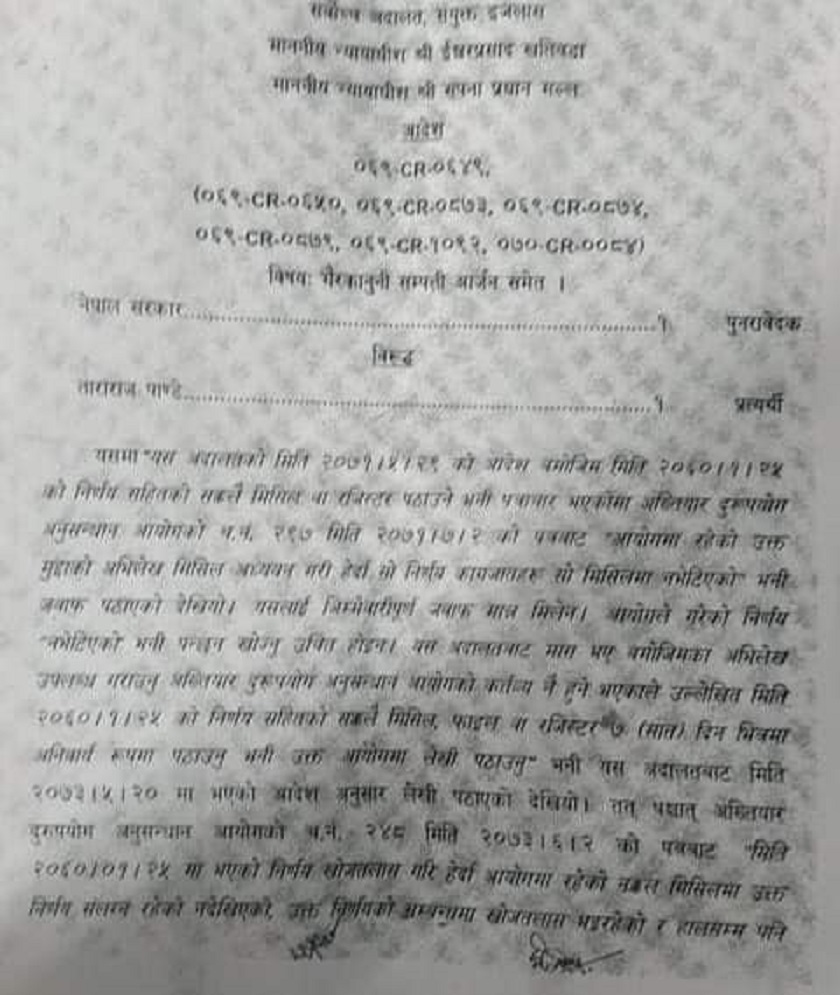 सर्वोच्च अदालत, संयुक्त इजलास
माननीय न्यायाधीश श्री ईश्वरप्रसाद खतिवडा
माननीय न्यायाधीश श्री सपना प्रधान मल्ल
आदेश
०६९-CR-०६४९,
(०६९-CR-०६५०, ०६९-CR-०८७३, ०६९-CR-०८७४,
०६९-CR-०८७९, ०६९-CR-१०१२, ०७०-CR-००८४)
विषयः गैरकानुनी सम्पती आर्जन समेत ।
नेपाल सरकार..........................................................१ पुनरावेदक
विरूद्ध
ताराराज पाण्डे..........................................................१ प्रत्यर्थी
यसमा "यस अदालतको मिति २०७१।५।२९ को आदेश बमोजिम मिति २०६०।१।२५
को निर्णय सहितको सक्कलै मिसिल वा रजिस्टर पठाउने भनी पत्राचार भएकोमा अख्तियार दुरूपयोग
अनुसन्धान आयोगको च.नं. २९७ मिति २०७१।७।२ को पत्रबाट "आयोगमा रहेको उक्त
मुद्दाको अभिलेख मिसिल अध्ययन गरी हेर्दा सो निर्णय कागजातहरू सो मिसिलमा नभेटिएको" भनी
जवाफ पठाएको देखियो। यसलाई जिम्मेवारीपूर्ण जवाफ मान्न मिलेन। आयोगले गरेको निर्णय
"नभेटिएको भनी पन्छन खोज्नु उचित होइन। यस अदालतबाट माग भए बमोजिमका अभिलेख
उपलब्ध गराउनु अख्तियार दुरूपयोग अनुसन्धान आयोगको कर्तव्य नै हुने भएकाले उल्लेखित मिति
२०६०।१।२५ को निर्णय सहितको सक्कलै मिसिल, फाइल वा रजिस्टर ७ (सात) दिन भित्रमा
अनिवार्य रूपमा पठाउनु भनी उक्त आयोगमा लेखी पठाउनु" भनी यस अदालतबाट मिति
२०७३।५।२० मा भएको आदेश अनुसार लेखी पठाएको देखियो। तत् पश्चात् अख्तियार
दुरूपयोग अनुसन्धान आयोगको च.नं. २४८ मिति २०७३।६।२ को पत्रबाट "मिति
२०६०।०१।२५ मा भएको निर्णय खोजतलास गरि हेर्दा आयोगमा रहेको नक्कल मिसिलमा उक्त
निर्णय संलग्न रहेको नदेखिएको, उक्त निर्णयको सम्बन्धमा खोजतलास भइरहेको र हालसम्म पनि